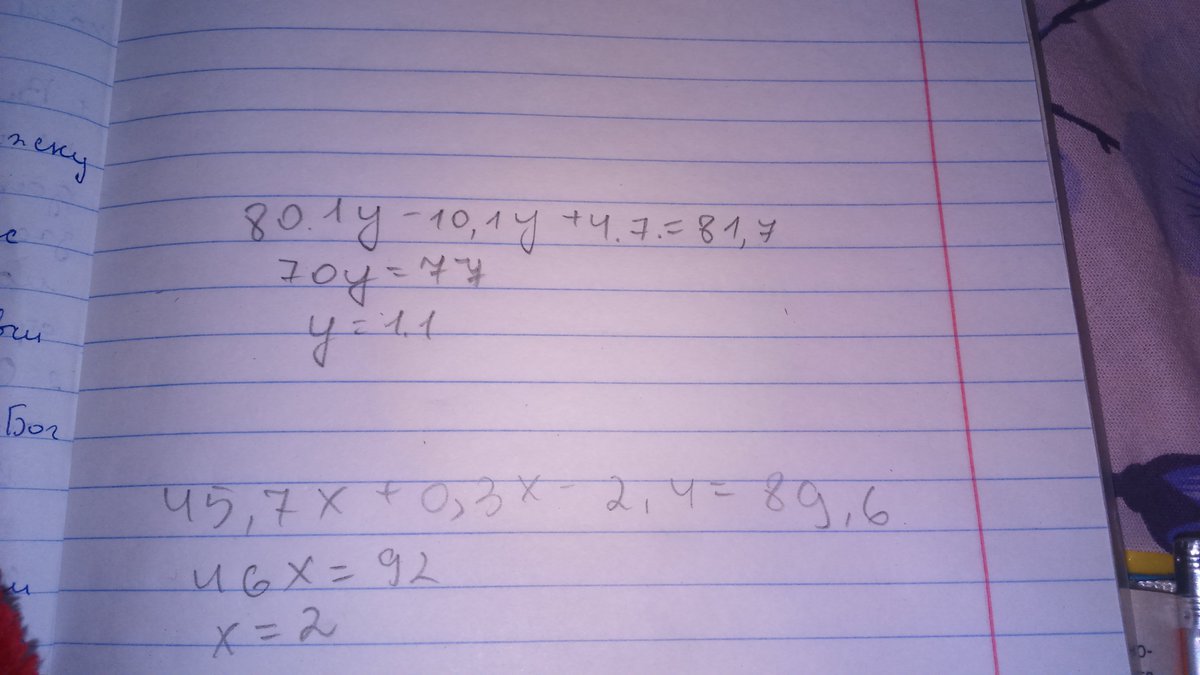 жску
с
Бог
80.1y - 10,1y + 4.7. = 81,7
70y = 77
y = 1.1
45,7x + 0,3x - 2,4 = 89,6
46x = 92
x = 2